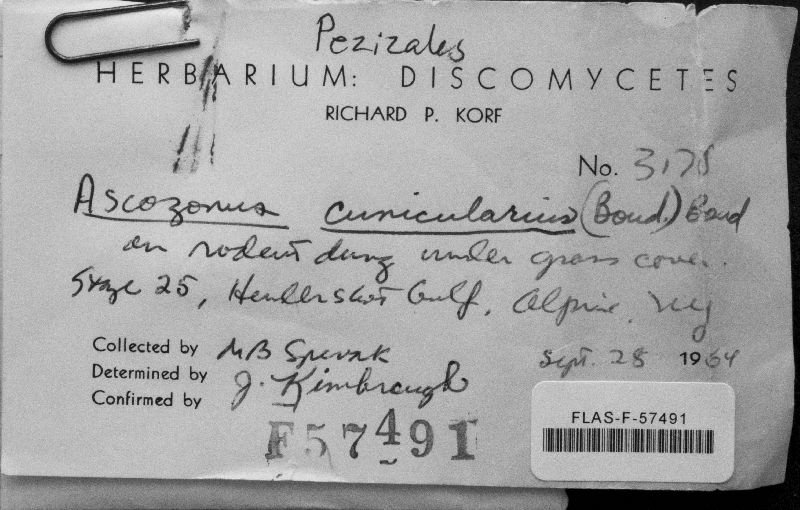 Pezizales
HERBARIUM: DISCOMYCETES
RICHARD P. KORF
No. 3175
Ascozonus cunicularius (Boud.) Boud
on rodent dung under grass cover.
Stage 25, Hendershot Gulf, Alpine, NY
Collected by MB Spevak Sept. 28 1964
Determined by J. Kimbrough
Confirmed by
F57491
FLAS-F-57491